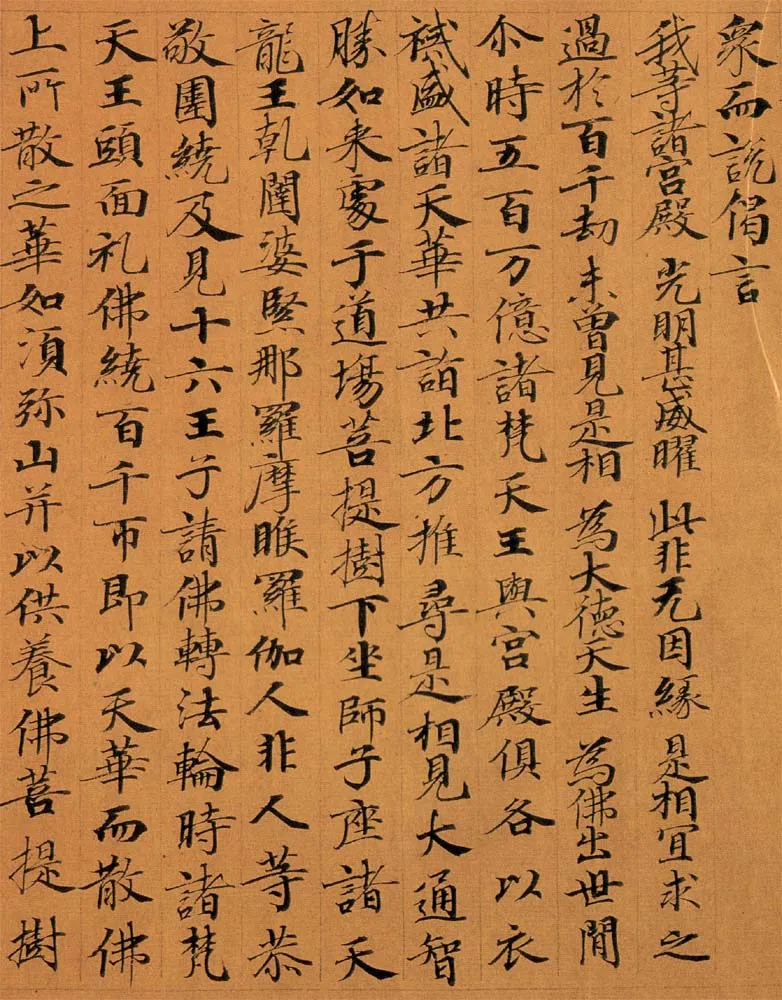 衆而說偈言
我等諸宮殿 光明甚威曜 此非无因緣 是相宜求之
過於百千劫 未曾見是相 為大德天生 為佛出世間
尒時五百万億諸梵天王與宮殿俱各以衣
裓盛諸天華共詣北方推尋是相見大通智
勝如来處于道場菩提樹下坐師子座諸天
龍王乾闥婆緊那羅摩睺羅伽人非人等恭
敬圍繞及見十六王子請佛轉法輪時諸梵
天王頭面礼佛繞百千帀即以天華而散佛
上所散之華如湏弥山并以供養佛菩提樹